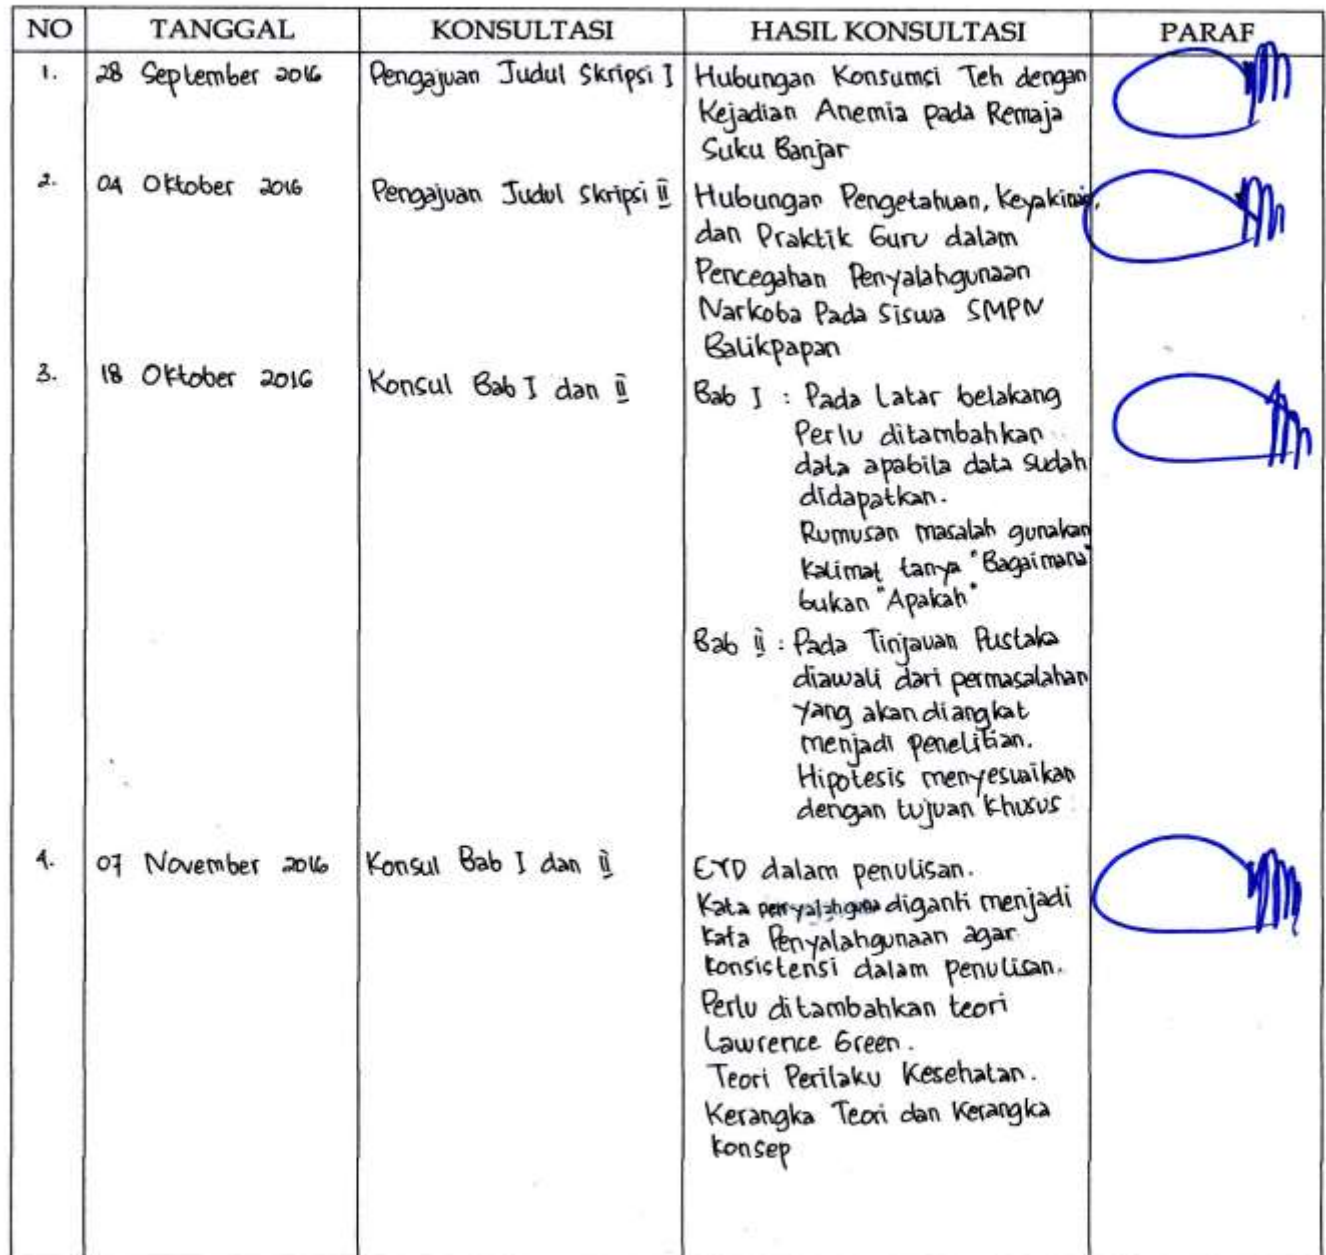 NO TANGGAL KONSULTASI HASIL KONSULTASI PARAF
1. 28 September 2016 Pengajuan Judul Skripsi I Hubungan Konsumsi Teh dengan
Kejadian Anemia pada Remaja
Suku Banjar
2. 04 Oktober 2016 Pengajuan Judul Skripsi II Hubungan Pengetahuan, Keyakinan,
dan Praktik Guru dalam
Pencegahan Penyalahgunaan
Narkoba Pada Siswa SMPN
Balikpapan
3. 18 Oktober 2016 Konsul Bab I dan II Bab I : Pada Latar belakang
Perlu ditambahkan
data apabila data sudah
didapatkan.
Rumusan masalah gunakan
Kalimat tanya "Bagaimana"
bukan "Apakah"
Bab II : Pada Tinjauan Pustaka
diawali dari permasalahan
yang akan diangkat
menjadi penelitian.
Hipotesis menyesuaikan
dengan tujuan khusus
4. 07 November 2016 Konsul Bab I dan II EYD dalam penulisan.
Kata penyalahguna diganti menjadi
kata Penyalahgunaan agar
konsistensi dalam penulisan.
Perlu ditambahkan teori
Lawrence Green.
Teori Perilaku Kesehatan.
Kerangka Teori dan Kerangka
Konsep